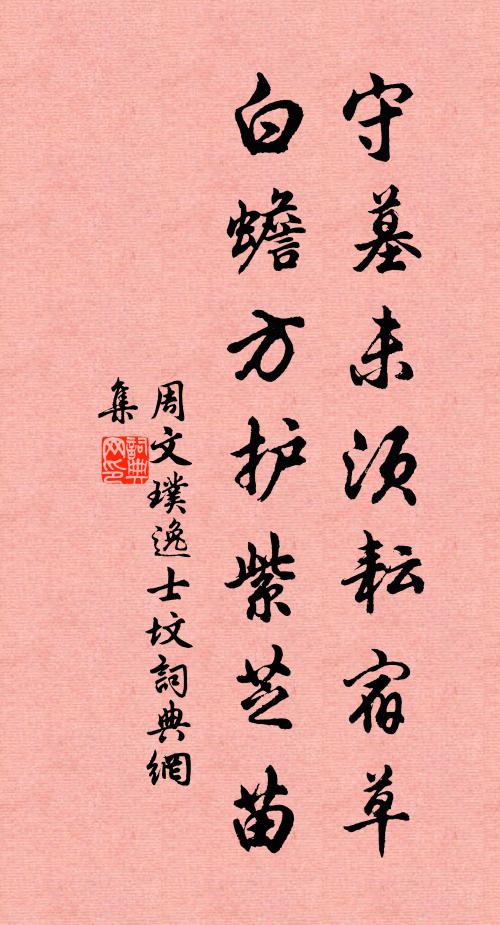 守墓未须耘宿草
白蟾方护紫芝苗
周文璞逸士坟詞典網
集
詞典网印